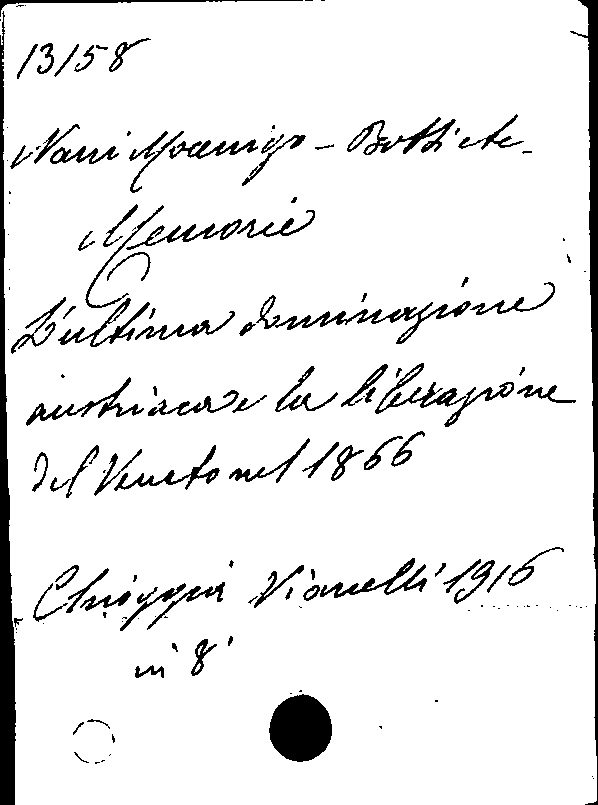 13158
Nani Mocenigo - Botti etc -
Memorie
L'ultima dominazione
austriaca e la liberazione
del Veneto nel 1866
Chioggia Vianelli 1916
in 8°